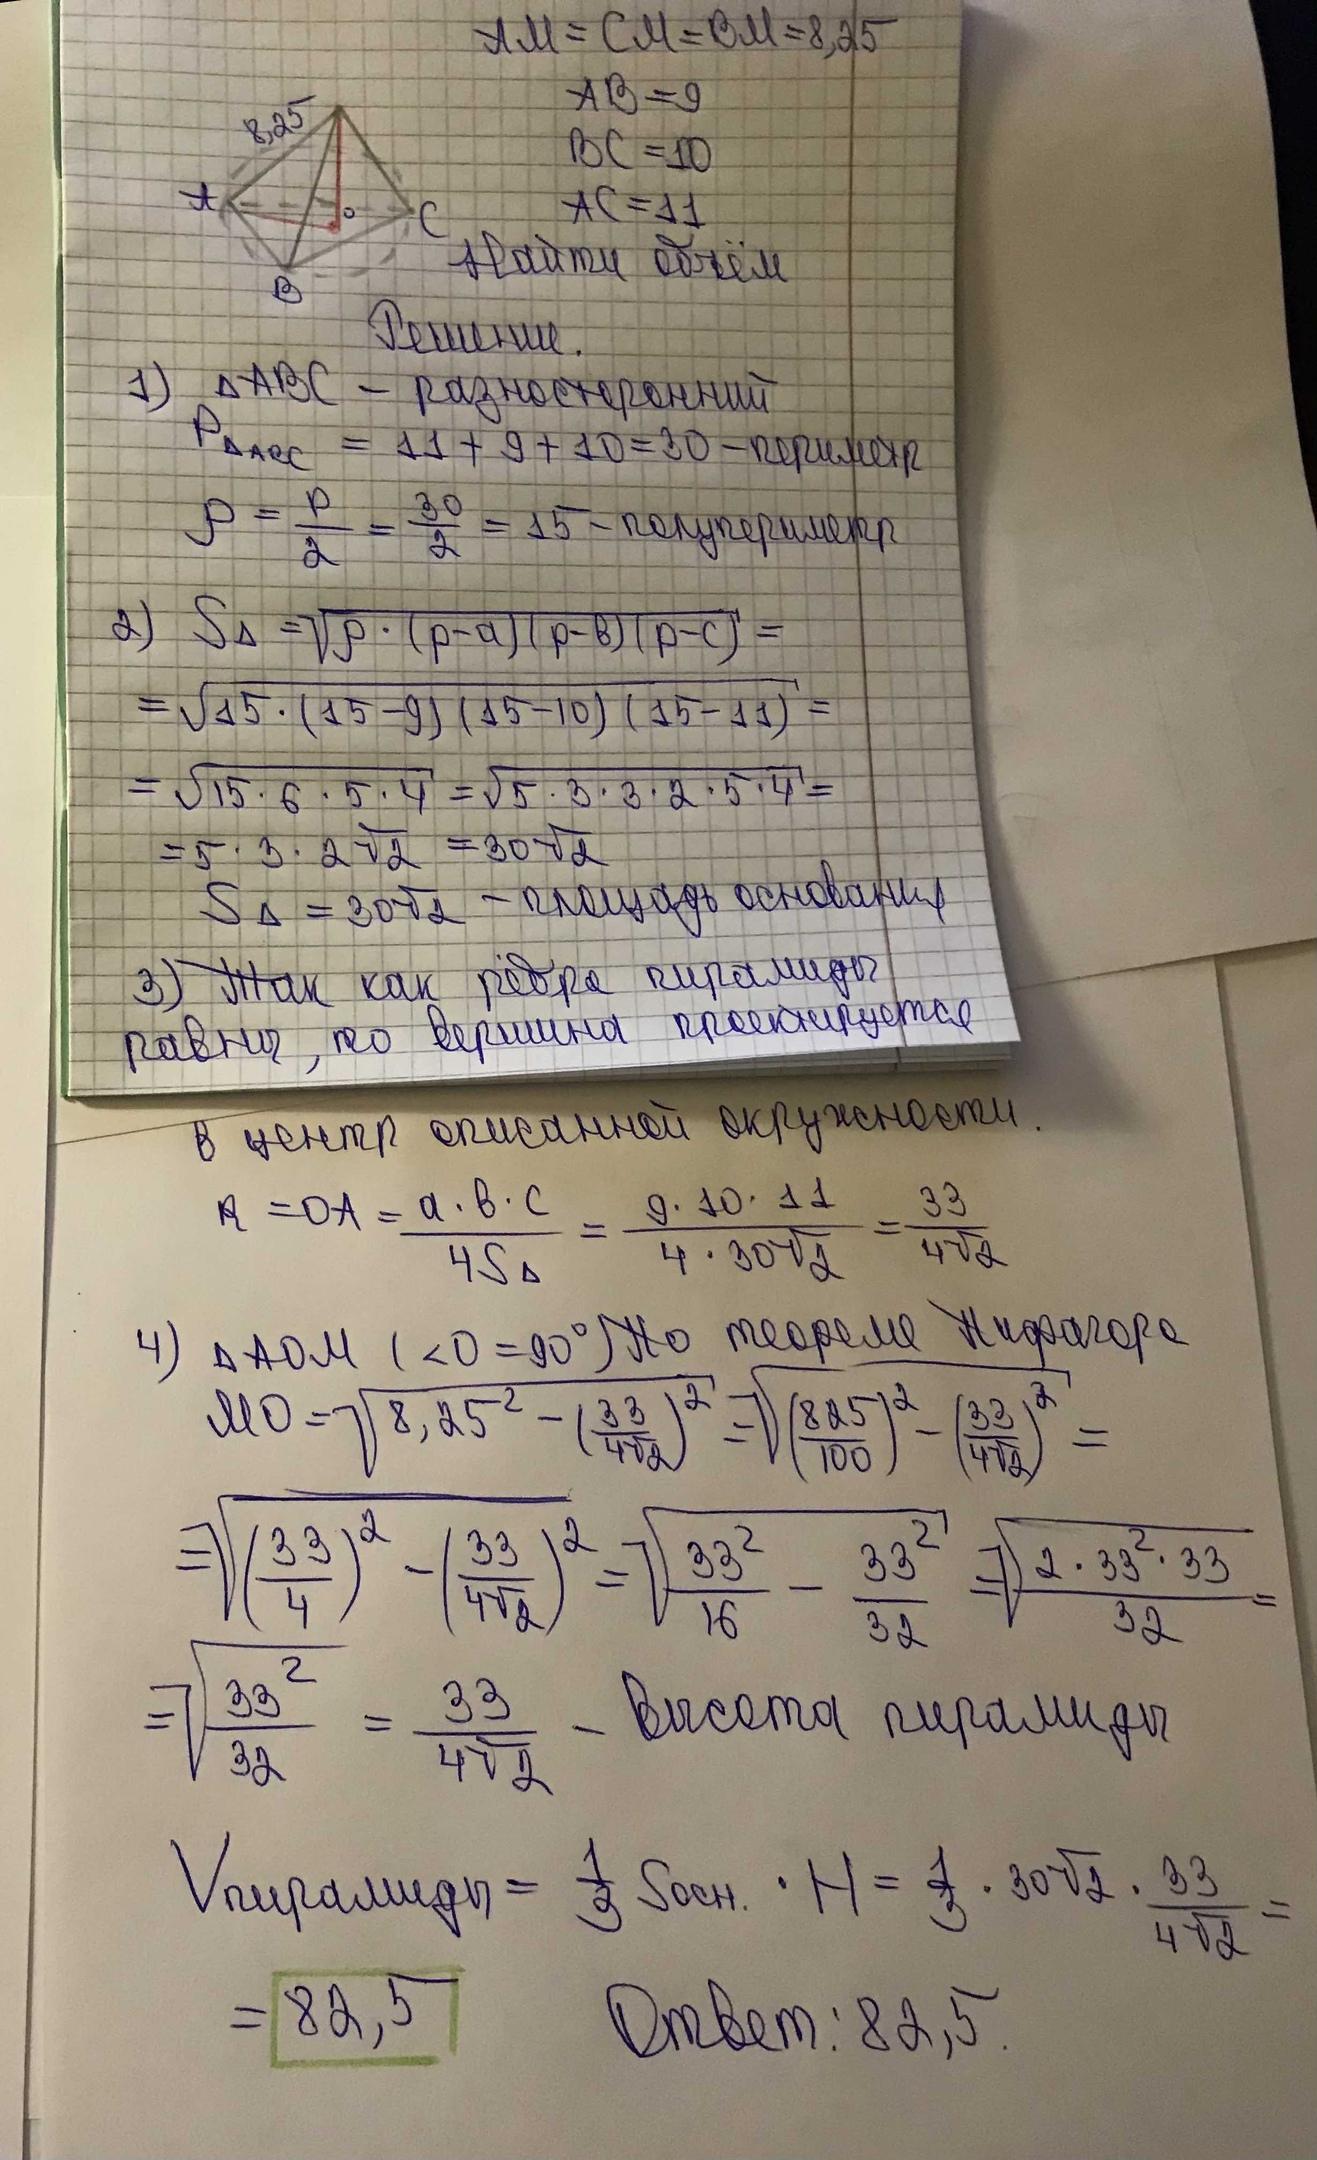 AM = CM = BM = 8,25
AB = 9
8,25
BC = 10
A
O
C
AC = 11
Найти объём
B
Решение.
1) ΔABC – разносторонний
PΔABC = 11 + 9 + 10 = 30 – периметр
p = P/2 = 30/2 = 15 – полупериметр
2) SΔ = √p·(p-a)(p-b)(p-c) =
= √15·(15-9)(15-10)(15-11) =
= √15·6·5·4 = √5·3·3·2·5·4 =
= 5·3·2√2 = 30√2
SΔ = 30√2 – площадь основания
3) Так как рёбра пирамиды
равны, то вершина проектируется
в центр описанной окружности.
R = OA = a·b·c/4SΔ = 9·10·11/4·30√2 = 33/4√2
4) ΔAOM (<O = 90°) По теореме Пифагора
MO = √8,25² – (33/4√2)² = √(825/100)² – (33/4√2)² =
= √(33/4)² – (33/4√2)² = √33²/16 – 33²/32 = √2·33²·33/32 =
= √33²/32 = 33/4√2 – Высота пирамиды
Vпирамиды = 1/3 Sосн. · H = 1/3 · 30√2 · 33/4√2 =
= 82,5 Ответ: 82,5.